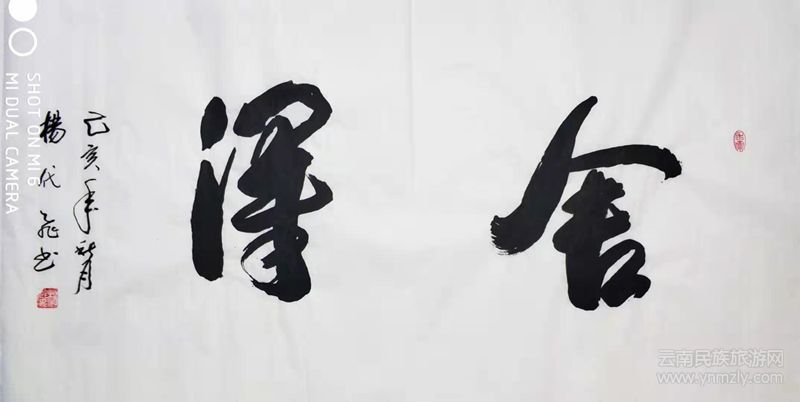 舍得
己亥年秋月
楊代飛书
SHOT ON MI 6
MI DUAL CAMERA
云南民族旅游网
www.ynmzly.com